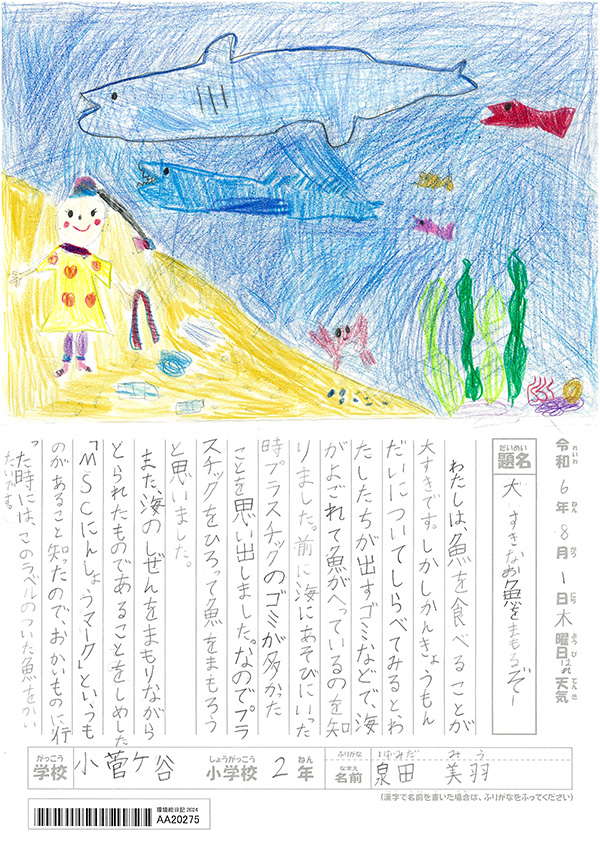 令和6年8月1日木曜日 はれ 天気
れいわ ねん がつ にち ようび てんき
だいめい
題名
大すきなお魚をまもるぞー
わたしは、魚を食べることが
大すきです。しかしかんきょうもん
だいについてしらべてみるとわ
たしたちが出すゴミなどで、海
がよごれて魚がへっているのを知
りました。前に海にあそびにいった
時プラスチックのゴミが多かた
ことを思い出しました。なのでプラ
スチックをひろって魚をまもろう
と思いました。
また、海のしぜんをまもりながら
とられたものであることをしめした
「MSCにんしょうマーク」というも
のがあること知ったので、おかいものに行
った時には、このラベルのついた魚をかい
たいです。
がっこう
学校 小菅ケ谷
しょうがっこう
小学校 2年
ねん
ふりがな みう
なまえ
名前 泉田 美羽
(漢字で名前を書いた場合は、ふりがなをふってください)
環境絵日記2024
AA20275